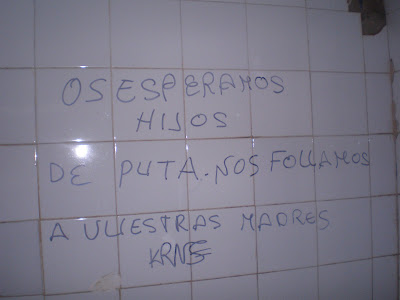 OS ESPERAMOS
HIJOS
DE PUTA. NOS FOLLAMOS
A VUESTRAS MADRES